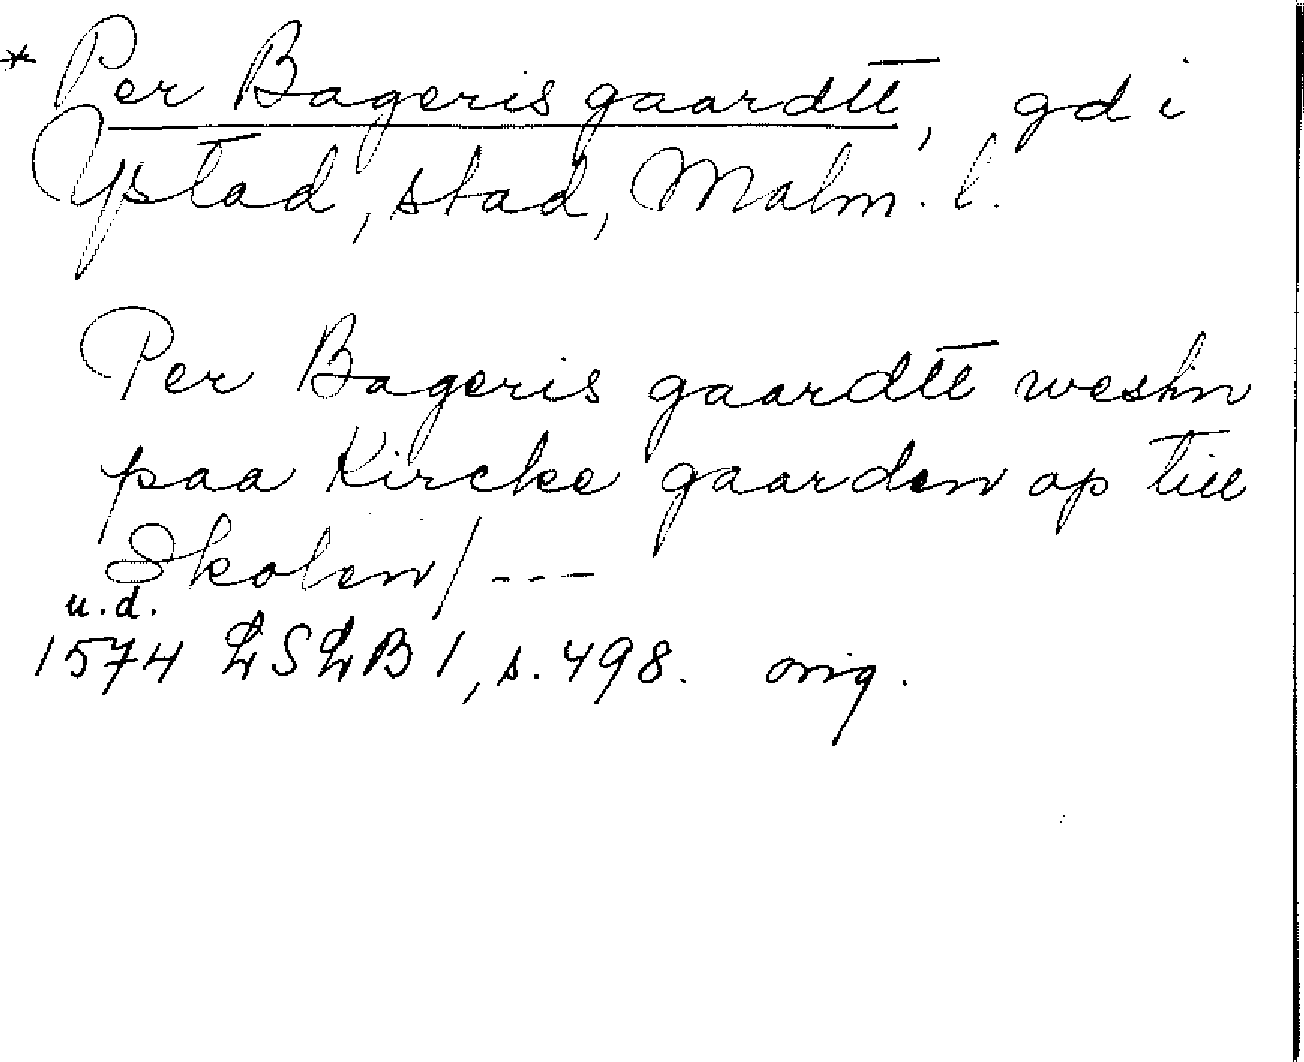 * Per Bageris gaardtt, gd i
Ystad, stad, Malm. l.
Per Bageris gaardtt westn
paa Kircke gaarden op till
Skolen/ ---
u.d.
1574 LSLB 1, s. 498. orig.